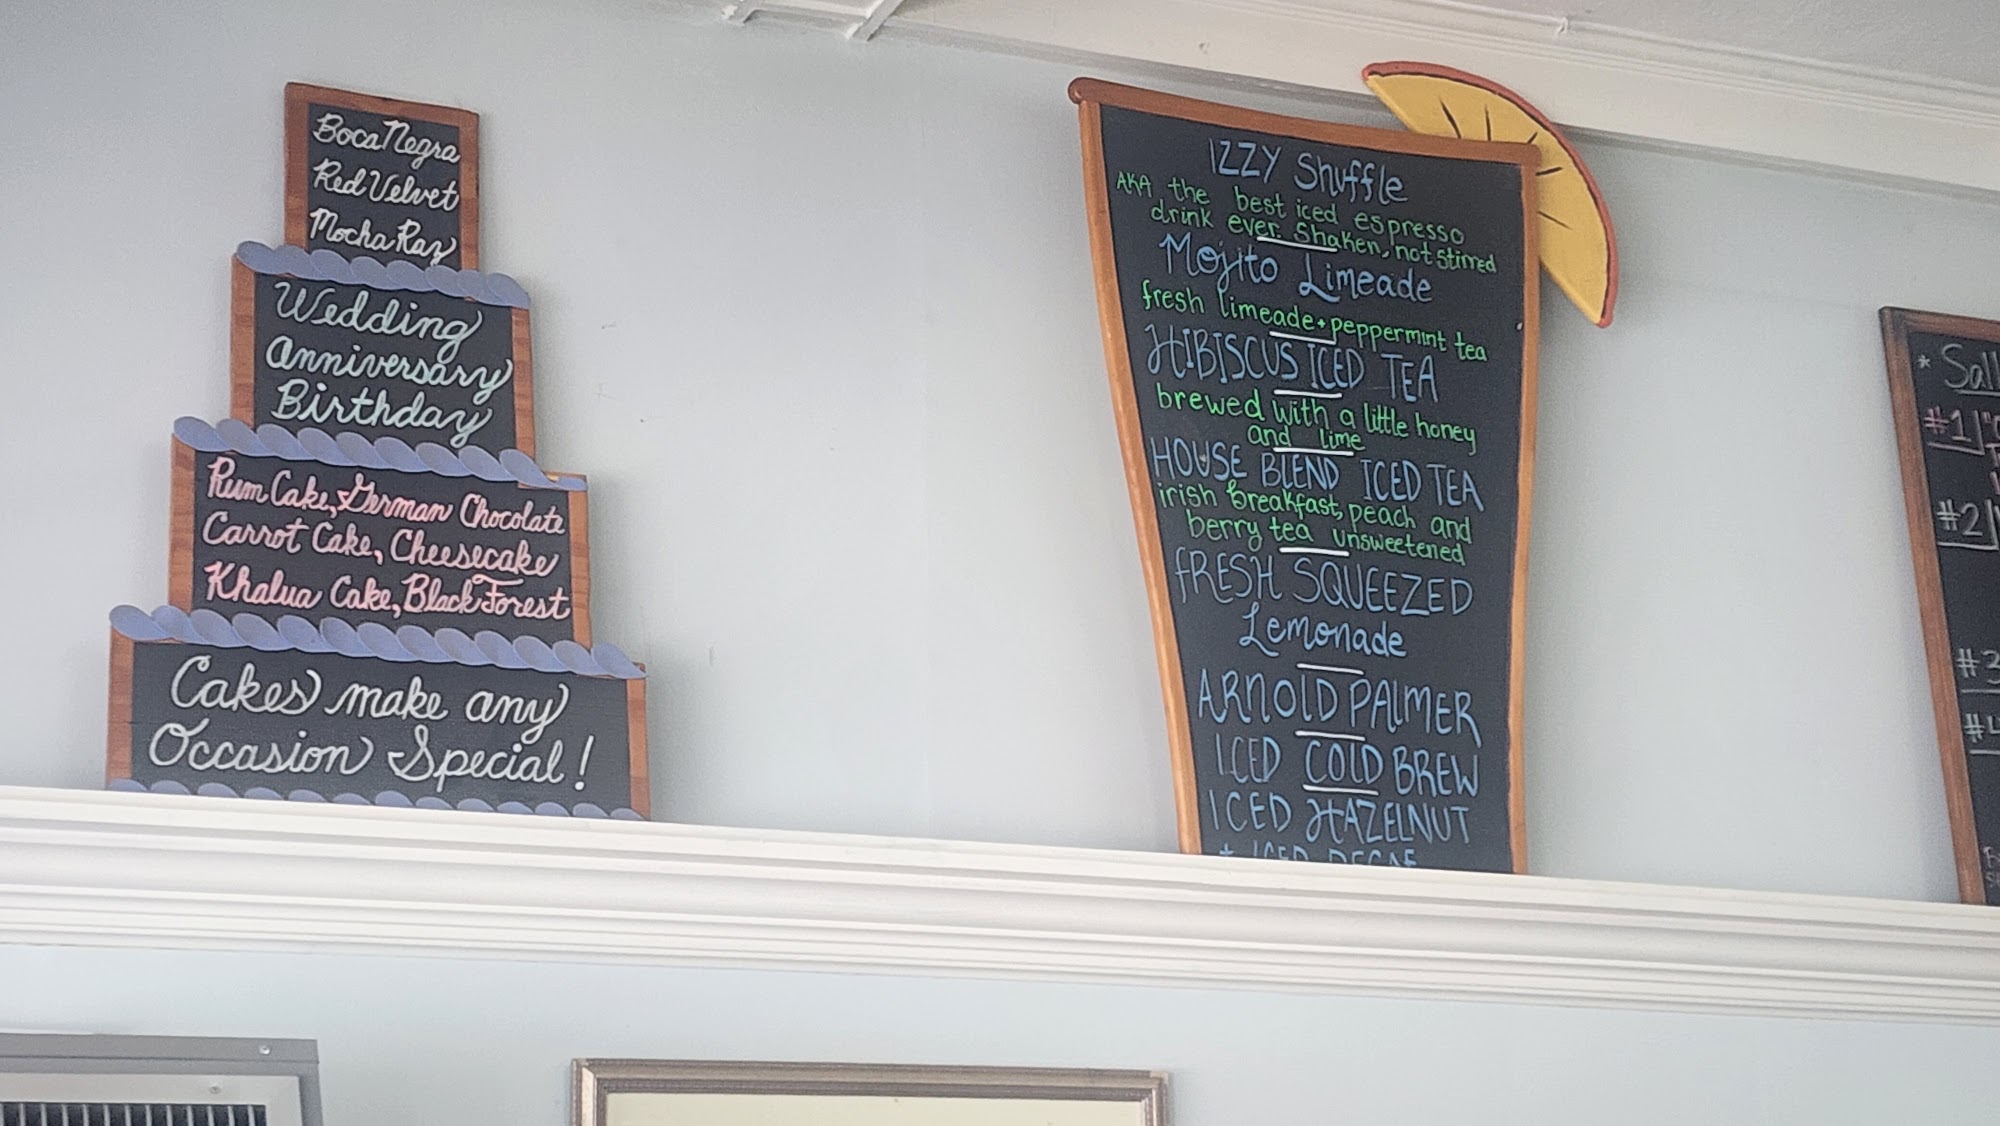 Boca Negra
Red Velvet
Mocha Ray
Wedding
Anniversary
Birthday
Rum Cake, German Chocolate
Carrot Cake, Cheesecake
Khalua Cake, Black Forest
Cakes make any
Occasion Special!
IZZY Shuffle
AKA the best iced espresso
drink ever. Shaken, not stirred
Mojito Limeade
fresh limeade + peppermint tea
HIBISCUS ICED TEA
brewed with a little honey
and lime
HOUSE BLEND ICED TEA
irish breakfast, peach and
berry tea unsweetened
FRESH SQUEEZED
Lemonade
ARNOLD PALMER
ICED COLD BREW
ICED HAZELNUT
* ICED DECAF
#1
#2
#3
#4